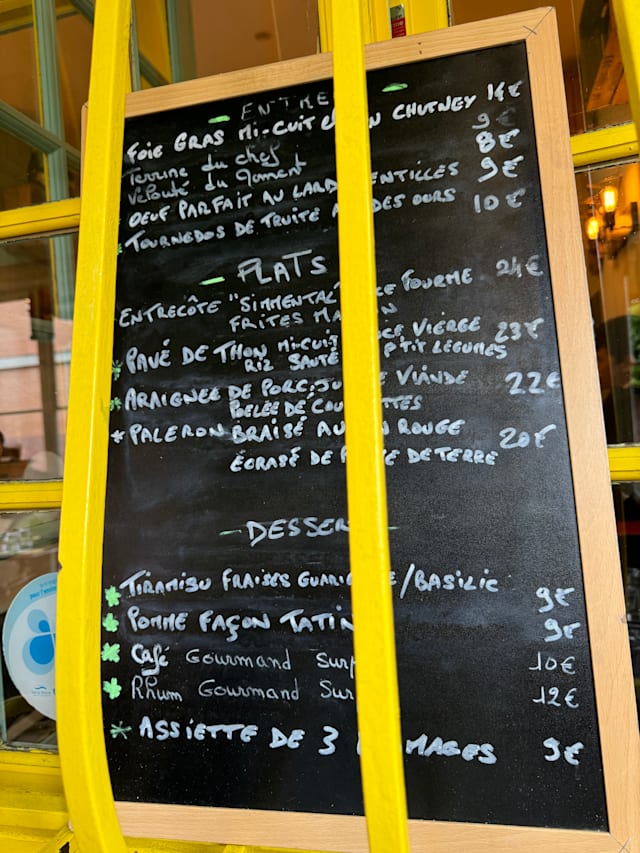 ENTRE
FOIE GRAS MI-CUIT CHUTNEY 14€
Terrine du chef 9€
Velouté du moment 8€
OEUF PARFAIT AU LARD LENTILLES 9€
TOURNEDOS DE TRUITE DES OURS 10€
PLATS
ENTRECÔTE "SIMMENTAL" FOURME 24€
FRITES
PAVÉ DE THON MI-CUIT VIERGE 23€
RIZ SAUTÉ P'TIT LEGUMES
ARAIGNÉE DE PORC, JU VIANDE 22€
POELÉE DE
PALERON BRAISÉ AU ROUGE 20€
ECRASÉ DE DE TERRE
DESSER
TIRAMISU FRAISES /BASILIC 9€
POMME FAÇON TATIN 9€
Café Gourmand Sur 10€
Rhum Gourmand Sur 12€
ASSIETTE DE 3 MAGES 9€